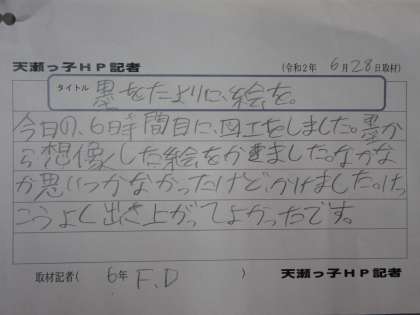 天瀬っ子HP記者 (令和2年 6月28日取材)
タイトル 墨をたよりに、絵を。
今日の、6時間目に、図工をしました。墨か
ら想像した絵をかきました。なかな
か思いつかなかったけど、かけました。けっ
こうよく出き上がってよかったです。
取材記者( 6年 F.D ) 天瀬っ子HP記者